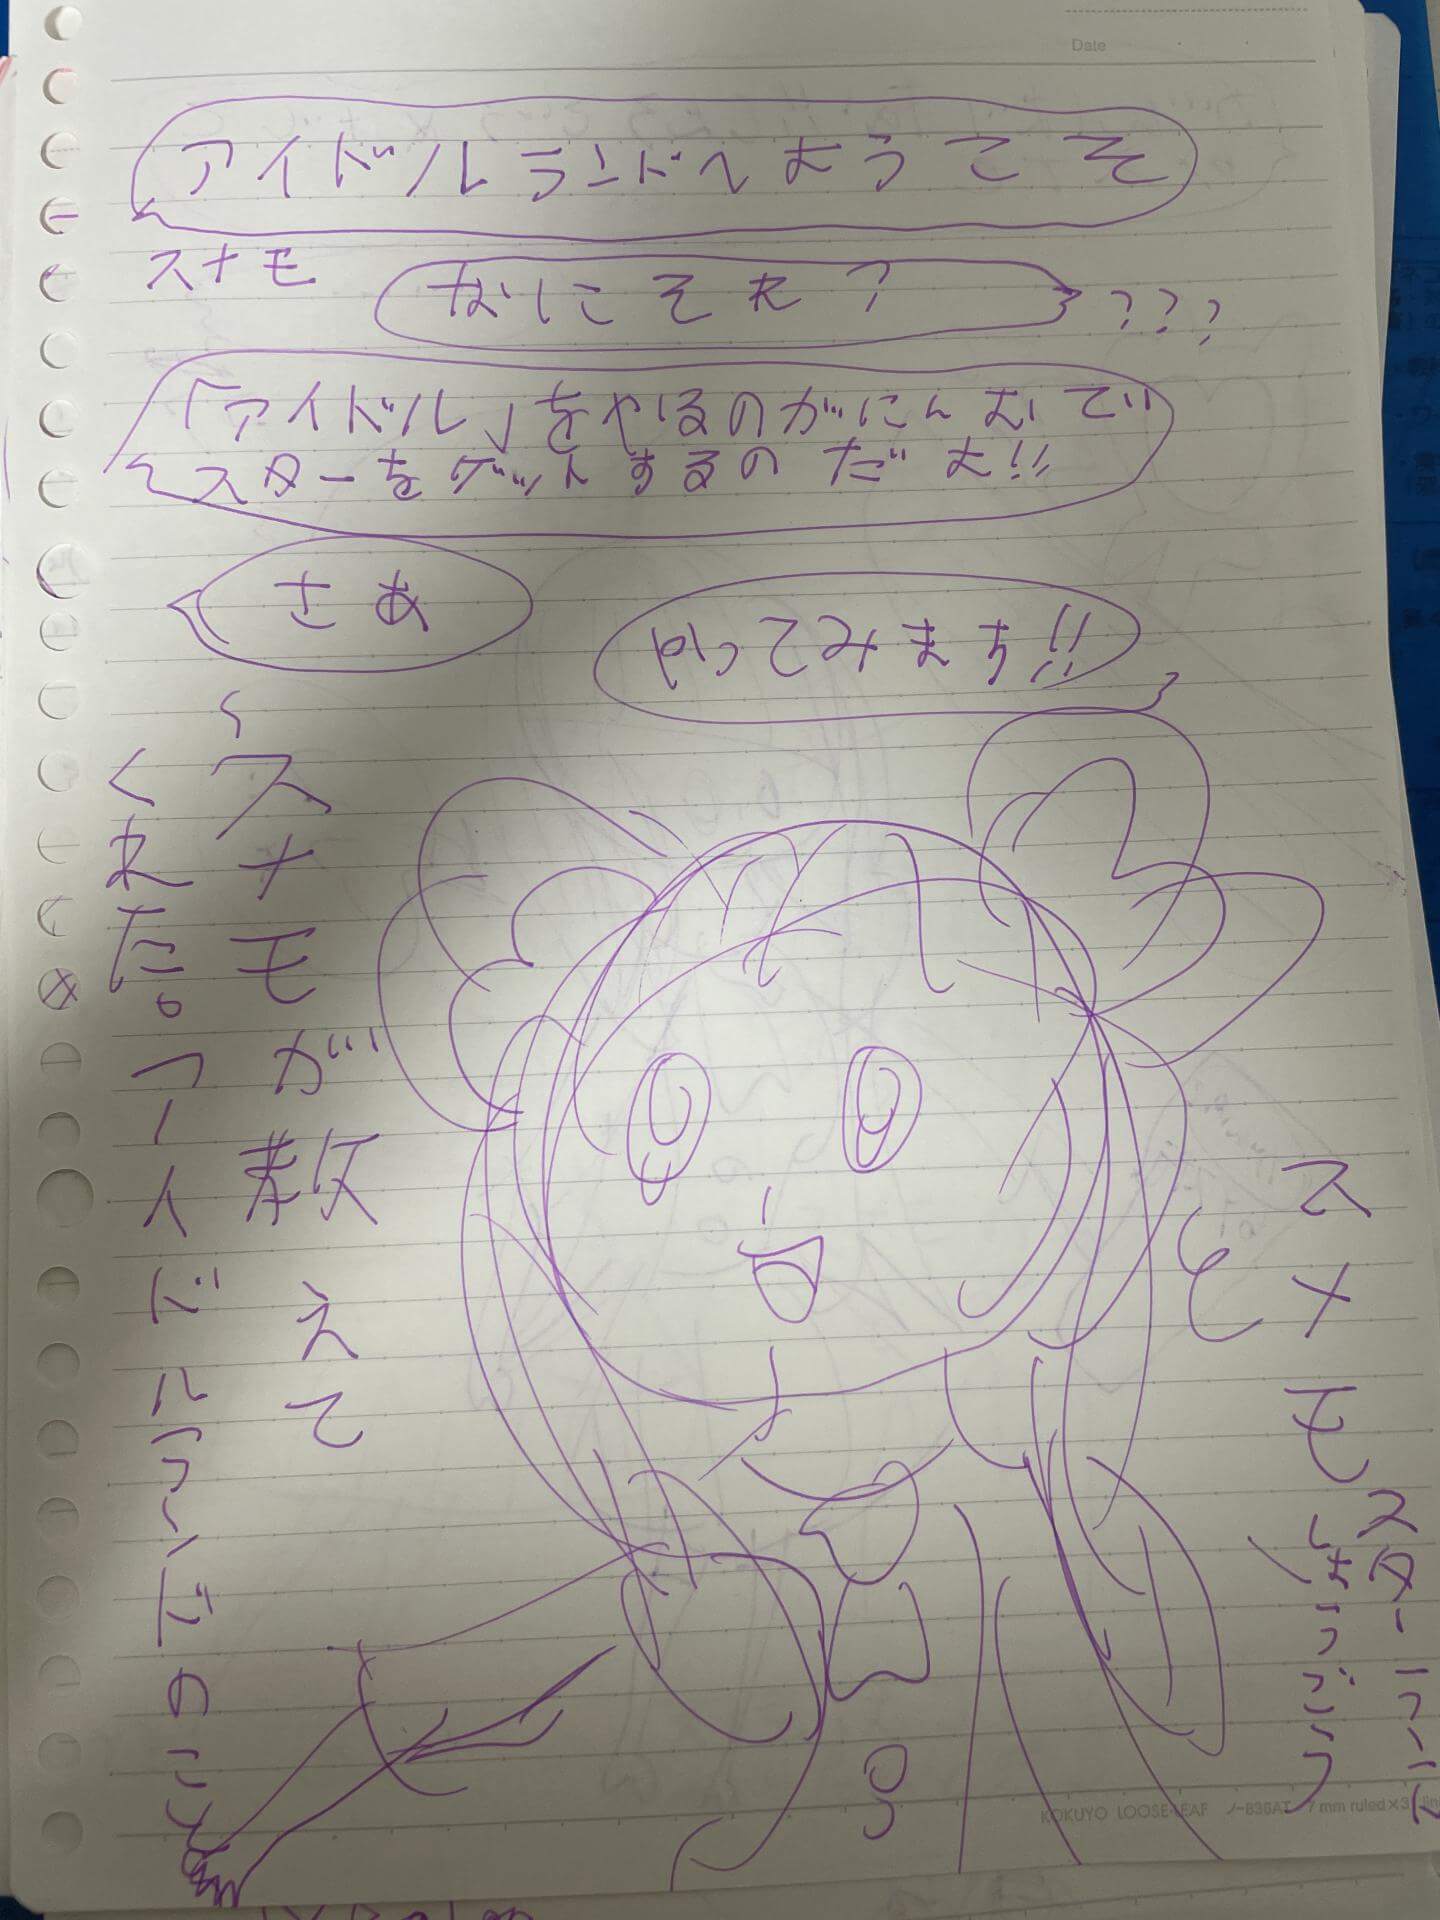 Date
アイドルランドへようこそ
スナモ
なにそれ?
???
「アイドル」をやるのがにんむで
スターをゲットするのだ!!
さあ
やってみまち!!
スナモが教えて
くれた。
アイドルランドのこと
スナモ
スター
しょうごう
KOKUYO LOOSE-LEAF ノ-836AT 7 mm ruled×3